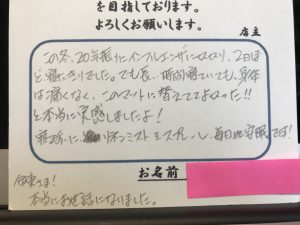 を目指しております。
よろしくお願いします。
店主
この冬、20年振りにインフルエンザにかかり、2日ほ
ど寝たきりでした。でも長い時間寝ていても、身体
は痛くなく、このマットに替えててよかった!!
と本当に実感しましたよ!
寝る前に リネンミストをスプレーし、毎日 安眠です!
お名前
さま!
本当にお世話になりました。